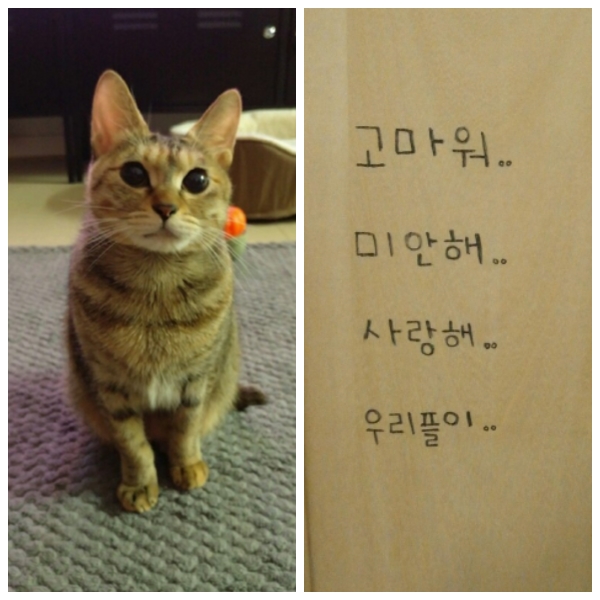 고마워..
미안해..
사랑해..
우리플이..